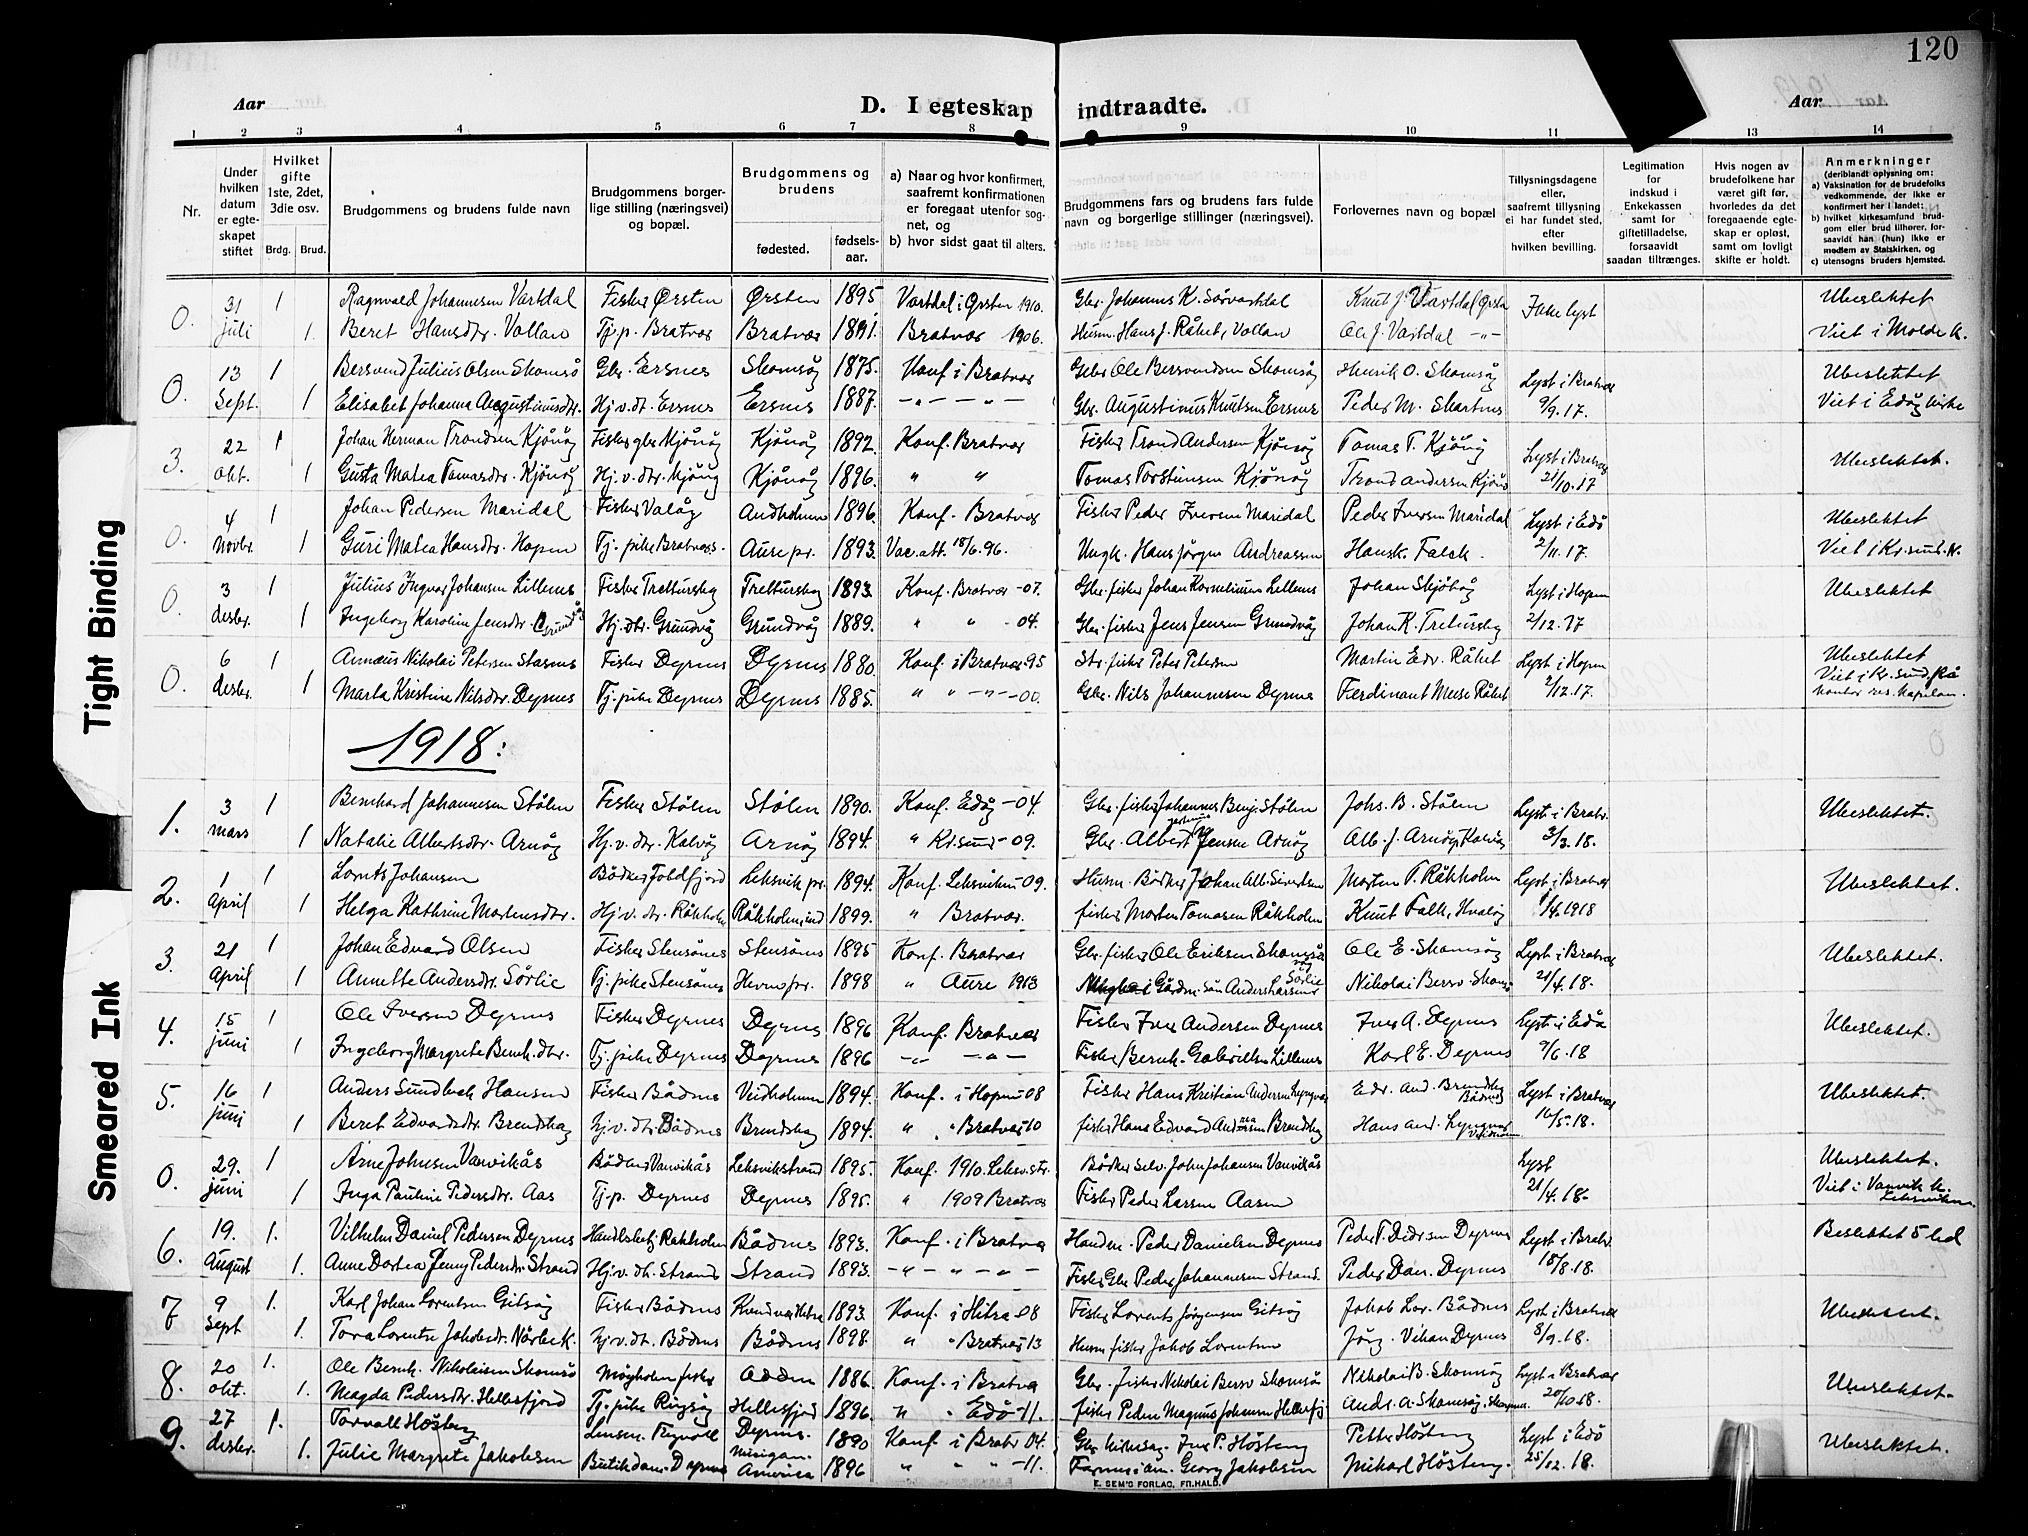 120
Aar
D. I egteskap indtraadte.
Aar
1 2 3 4 5 6 7 8 9 10 11 13 14
Nr.
Under hvilken datum er egteskapet stiftet
Hvilket gifte 1ste, 2det, 3die osv.
Brdg. Brud.
Brudgommens og brudens fulde navn
Brudgommens borgerlige stilling (næringsvei) og bopæl.
Brudgommens og brudens
fødested. fødselsaar.
a) Naar og hvor konfirmert, saafremt konfirmationen er foregaat utenfor sognet, og
b) hvor sidst gaat til alters.
Brudgommens fars og brudens fars fulde navn og borgerlige stillinger (næringsvei).
Forlovernes navn og bopæl
Tillysningsdagene eller, saafremt tillysning ei har fundet sted, efter hvilken bevilling.
Legitimation for indskud i Enkekassen samt for giftetilladelse, forsaavidt saadan tiltrænges.
Hvis nogen av brudefolkene har været gift før, hvorledes da det foregaaende egteskap er opløst, samt om lovligt skifte er holdt.
Anmerkninger (deriblandt oplysning om:
a) Vaksination for de brudefolks vedkommende, der ikke er konfirmert her i landet:
b) hvilket kirkesamfund brudgom eller brud tilhører, forsaavidt han (hun) ikke er medlem av Statskirken, og
c) utensogns bruders hjemsted.
0. 31 juli 1 Ragnvald Johannesen Vartdal Fisker Ørsten Ørsten 1895 Vartdal i Ørsten 1910. Gbr. Johannes K. Sørvartdal Knut J. Vartdal Ørsta Ikke lyst Ubeslektet
1. Beret Hansdtr. Vollan Tj.p. Bratvær Bratvær 1891. Bratvær 1906. Husm. Hans J. Råket, Vollan Ole J. Vartdal -"- Viet i Molde k.
0. 13 Sept. 1 Bersvend Julius Olsen Skomsø Gbr. Ersnes Skomsøy 1875. Konf i Bratvær Gbr Ole Bersvendsen Skomsøy Henrik O. Skomsøy Lyst i Bratvær Ubeslektet
1 Elisabet Johanna Augustinusdtr. Hj.v.dt. Ersnes Ersnes 1887. -"- -"- Gbr. Augustinus Knutsen Ersnes Peder M. Skartnes 9/9.17. Viet i Edøy kirke
3. 22 Okt. 1 Johan Herman Trondsen Kjönöy Fisker gbr Kjönöy Kjönöy 1892. Konf. Bratvær Fisker Trond Andersen Kjönöy Tomas T. Kjönöy Lyst i Bratvær Ubeslektet.
1 Gusta Matea Tomasdtr. Kjönöy Hj.v.dtr. Kjönöy Kjönöy 1896. " " Tomas Torstensen Kjönöy Trond Andersen Kjönö 21/10.17
0. 4 Novbr. 1 Johan Pedersen Maridal Fisker Valöy Andholmen 1896. Konf. Bratvær Fisker Peder Iversen Maridal Peder Iversen Maridal Lyst i Edö Ubeslektet
1 Guri Matea Hansdtr. Hopen Tj. pike Bratvær. Aure pr. 1893. Vac. att. 18/6.96. Ungk. Hans Jørgen Andreassen Hansk. Falck. 2/11.17. Viet i Kr.sund. K.
0. 3 desbr. 1 Julius Ingvar Johansen Lillenes Fisker Trettursteg 1893. Konf. Bratvær -07. Gbr. fisker Johan Kornelius Lillenes Johan Skjöböy Lyst i Hopen Ubeslektet
1 Ingeborg Karoline Jensdtr. Grundvåg Hj. dtr. Grundvåg Grundvåg 1889. " " -04. Gbr. fisker Jens Jensen Grundvåg Johan K. 2/12.17
0. 6 desbr. 1 Annæus Nikolai Petersen Fisker Dyrnes Dyrnes 1880. Konf. i Bratvær 95 Str. fisker Peter Petersen Martin Edv. Råket Lyst i Hopen Ubeslektet
1 Marta Kristine Nilsdtr. Dyrnes Tj. pike Dyrnes Dyrnes 1885. " " -"- -00. Gbr. Nils Johannesen Dyrnes Ferdinant Råket 2/12.17. Viet i Kr.sund. På kontor res. kapelan.
1918:
1. 3 mars 1 Bernhard Johannesen Stölen Fisker Stölen Stölen 1890. Konf. Edöy -04. Gbr. fisker Johannes Benj. Stölen Johs. B. Stölen Lyst i Bratv. Ubeslektet.
1 Natalie Albertsdtr. Arnöy Hj.v.dtr. Kalvöy Arnöy 1894. " Kr.sund -09. Gbr. Albert Jensen Arnöy Alb. J. Arnöy, Kalvöy 3/3.18.
2. 1 April 1 Lornts Johansen Bödker Foldfjord Leksvik pr. 1894. Konf. Leksviken 09. Husm. Bödker Johan Alb. Sivertsen Morten T. Råkholm Lyst i Bratvær Ubeslektet.
1 Helga Kathrine Mortensdtr. Hj.v. dtr. Råkholm Råkholmsund 1899. " Bratvær. fisker Morten Tomasen Råkholm Knut Falk, Kvalöy 1/4.1918
3. 21 April 1 Johan Edvard Olsen Fisker Stensönes Stensönes 1895 Konf. Bratvær Gbr. fisker Ole Eriksen Skomsöy Ole E. Skomsöy Lyst i Bratvær Ubeslektet.
1 Annette Andersdtr. Sörlie Tj. pike Stensönes Hevne pr. 1898 " Aure 1913 Gårdm. sön Anders Larsen Sörlie Nikolai Bersv. Skomsö 21/4.18.
4. 15 juni 1 Ole Iversen Dyrnes Fisker Dyrnes Dyrnes 1896 Konf. Bratvær Fisker Iver Andersen Dyrnes Iver A. Dyrnes Lyst i Edö Ubeslektet.
1 Ingeborg Margrete Bernh.dtr. Tj. pike Dyrnes Dyrnes 1896 -"- -"- Fisker Bernh. Gabrielsen Lillenes Karl E. Dyrnes 9/6.18
5. 16 juni 1 Anders Sundbeck Hansen Fisker Bådnes Veidholmen 1894. Konf. i Hopen 08 Fisker Hans Kristian Andersen Lyngvær Edv. And. Brendskag Bådnes Lyst i Bratvær Ubeslektet.
1 Beret Edvardsdtr. Brendskag Hj.v. dtr. Bådnes Brendskag 1894. " " Bratvær 10 fisker Hans Edvard Andersen Brendskag Hans And. Lyngvær Veidholm 16/5.18.
0. 29. juni 1 Arne Johnsen Vanvikås Bödker Vanvikås Leksvikstrand 1895. Konf. 1910. Leksv.str. Bödker selv. John Johansen Vanvikås Lyst Ubeslektet.
1 Inga Pauline Pedersdtr. Aas Tj.p. Dyrnes Dyrnes 1895. " 1909 Bratvær Fisker Peder Larsen Aasen 21/4.18. Viet i Vanvik k. Leksviken
6. 19. August 1. Vilhelm Daniel Pedersen Dyrnes Handlsbetj Råkholm Bådnes 1893. Konf. i Bratvæ Handm. Peder Danielsen Dyrnes Peder T. Pedersen Dyrnes Lyst i Bratv. Beslektet 5 led
1. Anne Dortea Jenny Pedersdtr. Strand Hj.v. dt. Strand Strand 1893. -"-"-"- Fisker Gbr Peder Johannesen Strand. Peder Dan. Dyrnes 18/8.18.
7 9 Sept 1. Karl Johan Lorentsen Gitsöy Fisker Bådnes Kvendvær Hitra 1893. Konf. i Hitra 08 Fisker Lorents Jörgensen Gitsöy Jakob Lor. Bådnes Lyst i Bratvær Ubeslektet.
1. Tora Lorentse Jakobsdtr. Nörbek. Hj.v.dt. Bådnes Bådnes 1898. " " Bratvær 13 Husm fisker Jakob Lorentsen Jörg. Vikan Dyrnes 8/9.18.
8. 20 okt. 1. Ole Bernh. Nikolaisen Skomsö fisker Odden 1886. Konf. i Bratvæ Gbr. fisker Nikolai Bersv Skomsöy Nikolai B. Skomsöy Lyst i Bratvær Ubeslektet.
1. Magda Pedersdtr. Hellesfjord Tj. pike Ringsöy Hellesfjord 1896. " " Edö -11. fisker Peder Magnus Johansen Hellesfj Andr. A. Skomsöy. 20/10.18.
9. 27 desbr. 1. Torvall Hösteng Dyrnes. 1890 Konf. i Bratv 04. Gbr. Iver P. Hösteng Petter Hösteng Lyst i Edö Ubeslektet.
1. Julie Margrete Jakobsen Butikdam. Dyrnes Misigan. America 1896 " " " -11. Farmer i Am. Georg Jakobsen Mikael Hösteng. 25/12.18.
E. SEM'S FORLAG, FR.HALD.
Tight Binding
Smeared Ink